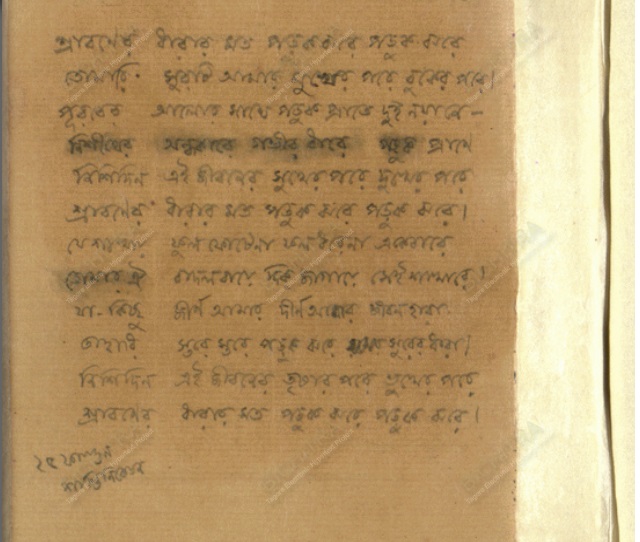 শ্রাবণের ধারার মত পড়ুক ঝরে পড়ুক ঝরে
তোমারি সুরটি আমার মুখের পরে বুকের পরে।
পূরবের আলোর সাথে পড়ুক প্রাতে দুই নয়ানে –
নিশীথের অন্ধকারে গভীর ধারে পড়ুক প্রাণে
নিশিদিন এই জীবনের সুখের পরে দুখের পরে
শ্রাবণের ধারার মত পড়ুক ঝরে পড়ুক ঝরে।
যে শাখায় ফুল ফোটেনা ফল ধরেনা একেবারে
তোমার ঐ বাদল বায়ে দিক জাগায়ে সেই শাখারে।
যা-কিছু জীর্ণ আমার দীর্ণ আমার জীবনহারা
তাহারি স্তরে স্তরে পড়ুক ঝরে সুরের ধারা।
নিশিদিন এই জীবনের তৃষার পরে ভুখের পরে
শ্রাবণের ধারার মত পড়ুক ঝরে পড়ুক ঝরে।
২৫ ফাল্গুন
শান্তিনিকেতন